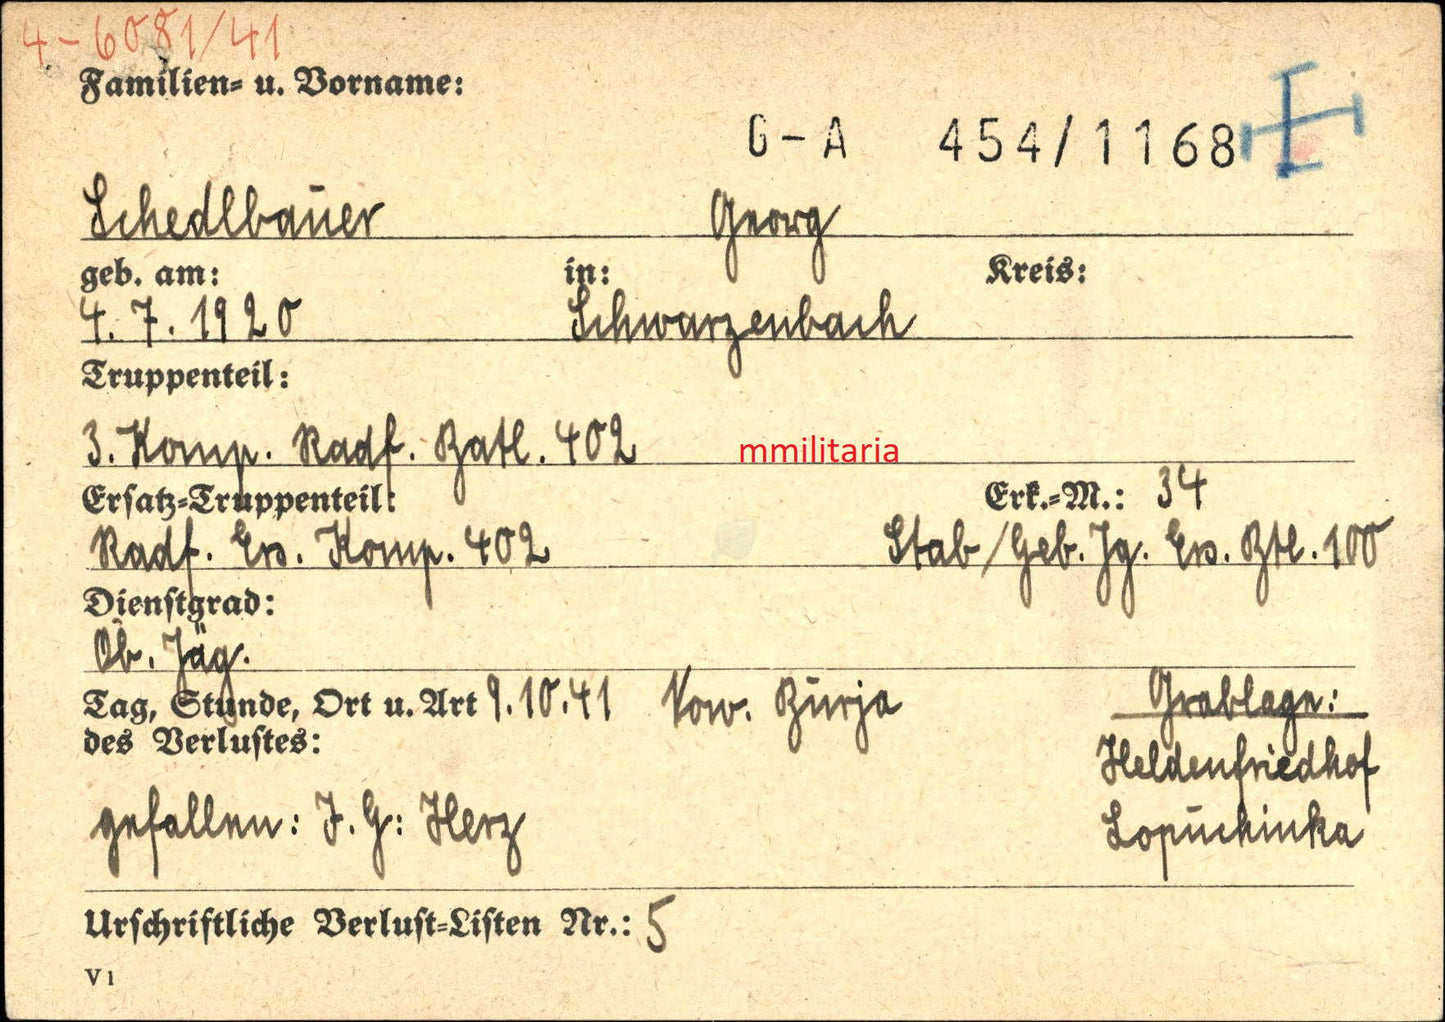 4-6081/41
Familien- u. Vorname:
G-A 454/1168
Schedlbauer Georg
geb. am: in: Kreis:
4.7.1920 Schwarzenbach
Truppenteil:
3. Komp. Radf. Batl. 402
mmilitaria
Ersatz-Truppenteil: Erk.-M.: 34
Radf. Ers. Komp. 402 Stab/Geb. Jg. Ers. Btl. 100
Dienstgrad:
Ob. Jäg.
Tag, Stunde, Ort u. Art 9.10.41 Vorw. Burja Grablage:
des Verlustes: Heldenfriedhof
gefallen: J. G: Herz Lopuchinka
Urschriftliche Verlust-Listen Nr.: 5
V1